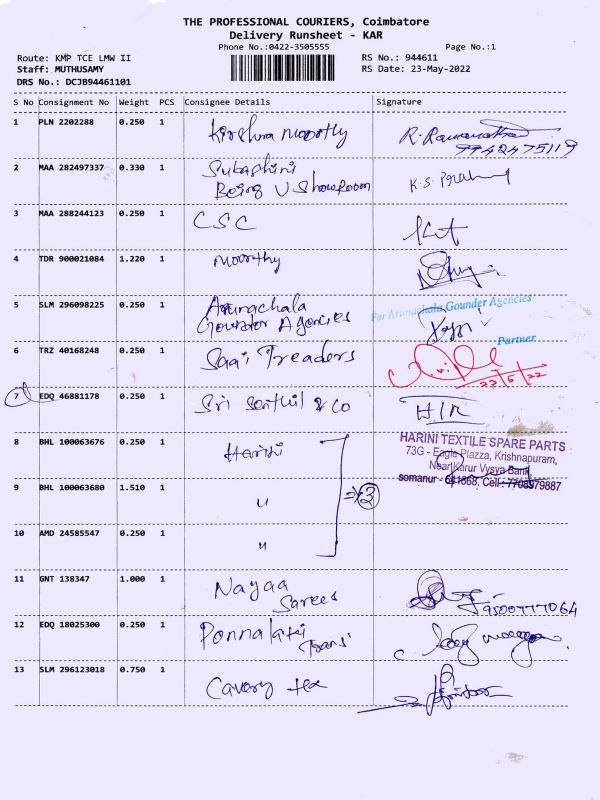 THE PROFESSIONAL COURIERS, Coimbatore
Delivery Runsheet - KAR
Phone No.:0422-3505555
Page No.:1
Route: KMP TCE LMW II
RS No.: 944611
Staff: MUTHUSAMY
RS Date: 23-May-2022
DRS No.: DCJB94461101
S No Consignment No Weight PCS Consignee Details Signature
1 PLN 2202288 0.250 1 Kirshna moorthy
9942475119
2 MAA 282497337 0.330 1 Subashini
Being U Showroom
3 MAA 288244123 0.250 1 CSC
4 TDR 900021084 1.220 1 moorthy
5 SLM 296098225 0.250 1 Arunachala
Gounder Agencies
For Arunachala Gounder Agencies
Partner
6 TRZ 40168248 0.250 1 Saai Treaders
23/5/22
7 EDQ 46881178 0.250 1 Sri Senthil & Co
8 BHL 100063676 0.250 1 Harini
HARINI TEXTILE SPARE PARTS
73G - Eagle Plazza, Krishnapuram,
Near Karur Vysya Bank,
somanur - 641668. Cell : 7708979887
9 BHL 100063680 1.510 1 "
3
10 AMD 24585547 0.250 1 "
11 GNT 138347 1.000 1 Nayaa
Sarees
9500777064
12 EDQ 18025300 0.250 1 Ponnalatchi
Trans
13 SLM 296123018 0.750 1 Cavery tex